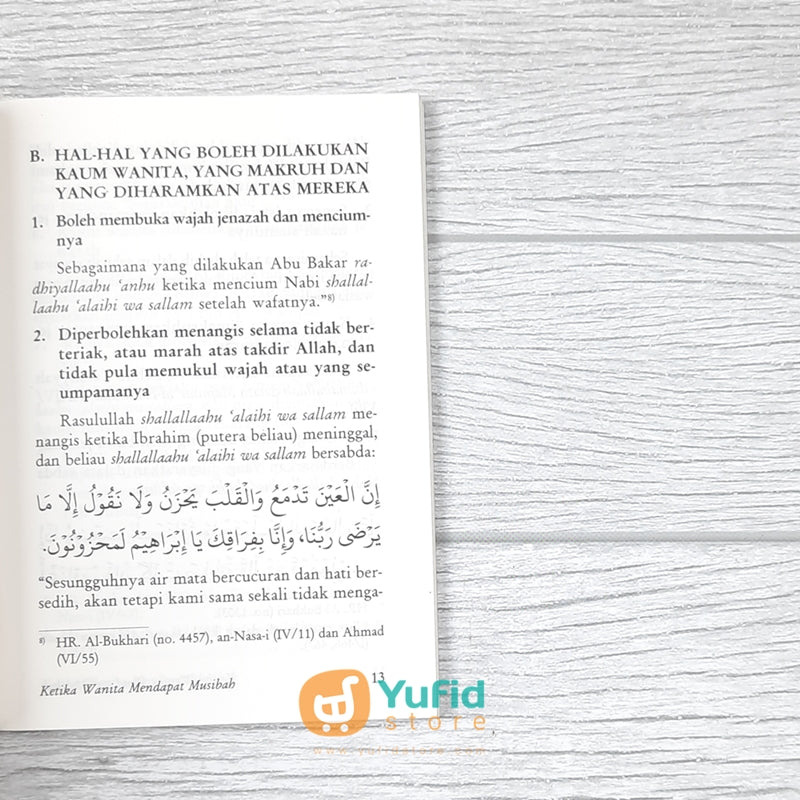 B. HAL-HAL YANG BOLEH DILAKUKAN
KAUM WANITA, YANG MAKRUH DAN
YANG DIHARAMKAN ATAS MEREKA
1. Boleh membuka wajah jenazah dan mencium-
nya
Sebagaimana yang dilakukan Abu Bakar ra-
dhiyallaahu ‘anhu ketika mencium Nabi shallal-
laahu ‘alaihi wa sallam setelah wafatnya.”8)
2. Diperbolehkan menangis selama tidak ber-
teriak, atau marah atas takdir Allah, dan
tidak pula memukul wajah atau yang se-
umpamanya
Rasulullah shallallaahu ‘alaihi wa sallam me-
nangis ketika Ibrahim (putera beliau) meninggal,
dan beliau shallallaahu ‘alaihi wa sallam bersabda:
إِنَّ الْعَيْنَ تَدْمَعُ وَالْقَلْبَ يَحْزَنُ وَلَا نَقُوْلُ إِلَّا مَا
يَرْضَى رَبُّنَا، وَإِنَّا بِفِرَاقِكَ يَا إِبْرَاهِيْمُ لَمَحْزُوْنُوْنَ.
“Sesungguhnya air mata bercucuran dan hati ber-
sedih, akan tetapi kami sama sekali tidak menga-
8) HR. Al-Bukhari (no. 4457), an-Nasa-i (IV/11) dan Ahmad
(VI/55)
Ketika Wanita Mendapat Musibah 13
Yufid
store
www.yufidstore.com